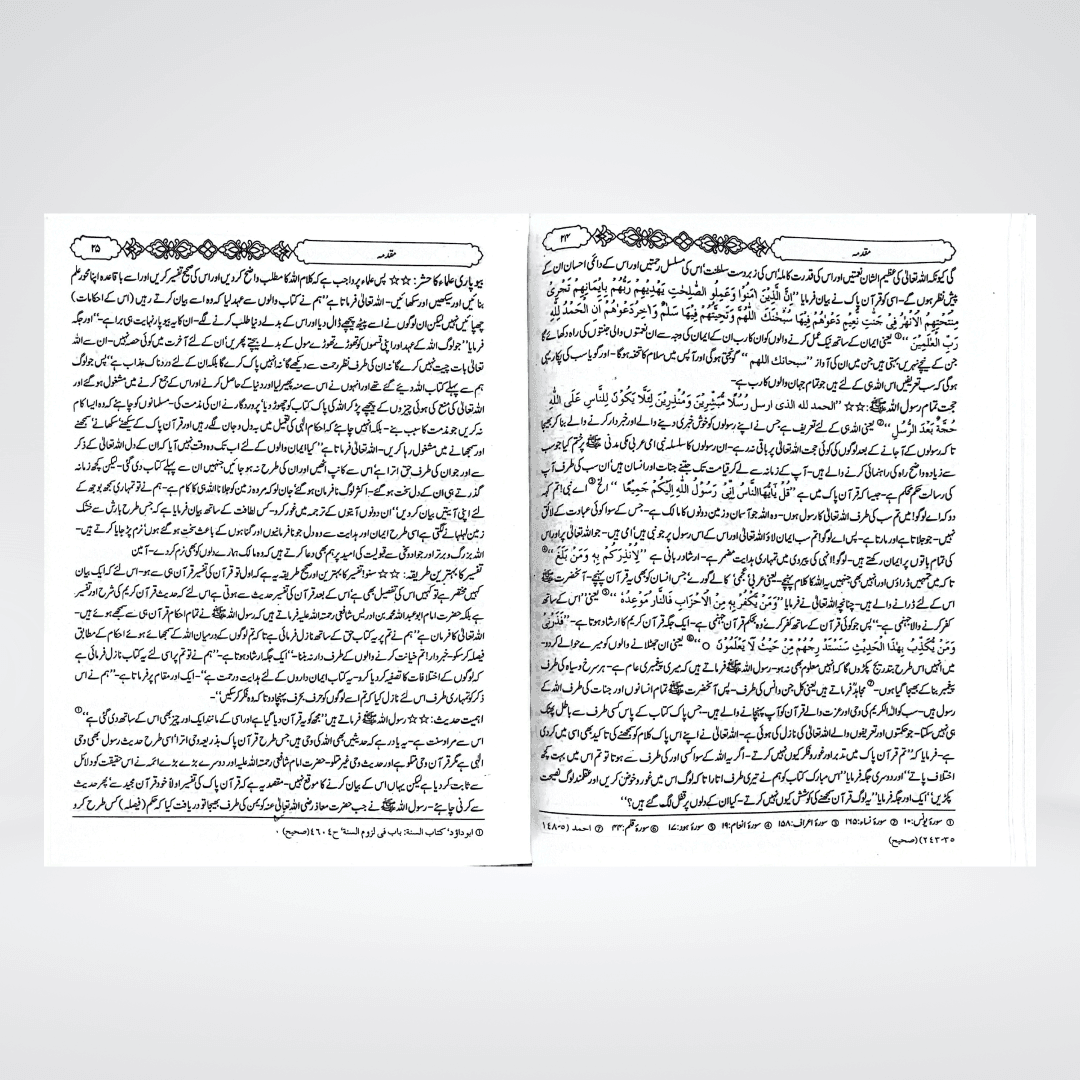 ۲۴
مقدمہ
گی کیونکہ اللہ تعالیٰ کی عظیم الشان نعمتیں اور اس کی قدرت کاملہ' اس کی زبردست سلطنت' اس کی مسلسل رحمتیں اور اس کے دائمی احسان ان کے
پیش نظر ہوں گے- اسی کو قرآن پاک نے بیان فرمایا ''اِنَّ الَّذِيْنَ اٰمَنُوْا وَعَمِلُو الصّٰلِحٰتِ يَهْدِيْهِمْ رَبُّهُمْ بِاِيْمَانِهِمْ تَجْرِىْ
مِنْتَحْتِهِمُ الْاَنْهٰرُ فِىْ جَنّٰتِ نَّعِيْمٍ دَعْوٰهُمْ فِيْهَا سُبْحٰنَكَ اللّٰهُمَّ وَتَحِيَّتُهُمْ فِيْهَا سَلٰمٌ وَاٰخِرُ دَعْوٰهُمْ اَنِ الْحَمْدُ لِلّٰهِ
رَبِّ الْعٰلَمِيْنَ''① یعنی ایمان کے ساتھ نیک عمل کرنے والوں کو ان کا رب ان کے ایمان کی وجہ سے ان نعمتوں والی جنتوں کی راہ دکھائے گا
جن کے نیچے نہریں بہتی ہیں جن میں ان کی آواز ''سبحانك اللهم'' گونجتی ہوگی اور آپس میں سلام کا تحفہ ہوگا- اور گویا سب کی پکار یہی
ہوگی کہ سب تعریفیں اس اللہ ہی کے لئے ہیں جو تمام جہان والوں کا رب ہے-
حجت تمام رسول اللہ ﷺ: ☆☆ ''الحمد لله الذى ارسل رُسُلًا مُّبَشِّرِيْنَ وَمُنْذِرِيْنَ لِئَلَّا يَكُوْنَ لِلنَّاسِ عَلَى اللّٰهِ
حُجَّةٌ بَعْدَ الرُّسُلِ''② یعنی اللہ ہی کے لئے تعریف ہے جس نے اپنے رسولوں کو خوش خبری دینے والے اور خبردار کرنے والے بنا کر بھیجا
تا کہ رسولوں کے آ جانے کے بعد لوگوں کی کوئی حجت اللہ تعالیٰ پر باقی نہ رہے- ان رسولوں کا سلسلہ نبی امی عربی مکی مدنی ﷺ پر ختم کیا جو سب
سے زیادہ واضح راہ کی راہنمائی کرنے والے ہیں- آپ کے زمانہ سے لے کر قیامت تک جتنے جنات اور انسان ہیں' ان سب کی طرف آپ
کی رسالت حکم محکم ہے- جیسا کہ قرآن پاک میں ہے ''قُلْ يٰٓاَيُّهَا النَّاسُ اِنِّىْ رَسُوْلُ اللّٰهِ اِلَيْكُمْ جَمِيْعًا'' الخ③ اے نبی! تم کہہ
دو کہ اے لوگو! میں تم سب کی طرف اللہ تعالیٰ کا رسول ہوں- وہ اللہ جو آسمان و زمین دونوں کا مالک ہے- جس کے سوا کوئی عبادت کے لائق
نہیں- جو جلاتا ہے اور مارتا ہے- پس اے لوگو! تم سب ایمان لاؤ اللہ تعالیٰ اور اس کے اس رسول پر جو نبی ہیں' امی ہیں- جو اللہ تعالیٰ پر اور اس
کی تمام باتوں پر ایمان رکھتے ہیں- لوگو! انہی کی پیروی میں تمہاری ہدایت مضمر ہے- ارشاد باری ہے ''لِاُنْذِرَكُمْ بِهٖ وَمَنْ بَلَغَ''④
تا کہ میں تمہیں ڈراؤں اور انہیں بھی جنہیں یہ اللہ کا کلام پہنچے- یعنی عربی' عجمی' کالے گورے' جس انسان کو بھی یہ قرآن پہنچے- آنحضرت ﷺ
اس کے لئے ڈرانے والے ہیں- چنانچہ اللہ تعالیٰ نے فرمایا ''وَمَنْ يَّكْفُرْ بِهٖ مِنَ الْاَحْزَابِ فَالنَّارُ مَوْعِدُهٗ''⑤ یعنی ''اس کے ساتھ
کفر کرنے والا جہنمی ہے-'' پس جو کوئی قرآن کے ساتھ کفر کرے' وہ بحکم قرآن جہنمی ہے- ایک جگہ قرآن کریم کا ارشاد ہوتا ہے- ''فَذَرْنِىْ
وَمَنْ يُّكَذِّبُ بِهٰذَا الْحَدِيْثِ سَنَسْتَدْرِجُهُمْ مِنْ حَيْثُ لَا يَعْلَمُوْنَ ○''⑥ یعنی ان جھٹلانے والوں کو میرے حوالے کر دو-
میں انہیں اس طرح بتدریج پکڑوں گا کہ انہیں معلوم بھی نہ ہو- رسول اللہ ﷺ فرماتے ہیں کہ میری پیغمبری عام ہے- ہر سرخ و سیاہ کی طرف
پیغمبر بنا کے بھیجا گیا ہوں-⑦ مجاہدؒ فرماتے ہیں یعنی کل جن و انس کی طرف- پس آنحضرت ﷺ تمام انسانوں اور جنات کی طرف اللہ کے
رسول ہیں- سب کو اللہ الکریم کی وحی اور عزت والے قرآن کو آپ پہنچانے والے ہیں- جس پاک کتاب کے پاس کسی طرف سے باطل پھٹک
ہی نہیں سکتا- جو حکمتوں اور تعریفوں والے اللہ تعالیٰ کی نازل کی ہوئی ہے- اللہ تعالیٰ نے اپنے اس پاک کلام کو سمجھنے کی تاکید بھی اسی میں کر دی
ہے- فرمایا کہ ''تم قرآن پاک میں تدبر اور غور و فکر کیوں نہیں کرتے- اگر یہ اللہ کے سوا کسی اور کی طرف سے ہوتا تو تم اس میں بہت کچھ
اختلاف پاتے'' اور دوسری جگہ فرمایا ''اس مبارک کتاب کو ہم نے تیری طرف اتارا تا کہ لوگ اس میں غور و خوض کریں اور عقلمند لوگ نصیحت
پکڑیں'' ایک اور جگہ فرمایا ''یہ لوگ قرآن سمجھنے کی کوشش کیوں نہیں کرتے- کیا ان کے دلوں پر قفل لگ گئے ہیں؟''
① سورۃ یونس: ۱۰ ② سورۃ نساء: ۱۶۵ ③ سورۃ اعراف: ۱۵۸ ④ سورۃ انعام: ۱۹ ⑤ سورۃ ہود: ۱۷ ⑥ سورۃ قلم: ۴۴ ⑦ احمد (۵-۱۴۸
۳۵-۲۴۳) (صحیح)
۲۵
مقدمہ
بیوپاری علماء کا حشر: ☆☆ پس علماء پر واجب ہے کہ کلام اللہ کا مطلب واضح کر دیں اور اس کی صحیح تفسیر کریں اور اسے باقاعدہ اپنا محور علم
بنائیں اور سیکھیں اور سکھائیں- اللہ تعالیٰ فرماتا ہے ''ہم نے کتاب والوں سے عہد لیا کہ وہ اسے بیان کرتے رہیں (اس کے احکامات)
چھپائیں نہیں لیکن ان لوگوں نے اسے پیٹھ پیچھے ڈال دیا اور اس کے بدلے دنیا طلب کرنے لگے- ان کا یہ بیوپار نہایت ہی برا ہے-'' اور جگہ
فرمایا ''جو لوگ اللہ کے عہد اور اپنی قسموں کو تھوڑے تھوڑے مول کے بدلے بیچتے پھریں' ان کے لئے آخرت میں کوئی حصہ نہیں- ان سے اللہ
تعالیٰ بات چیت نہیں کرے گا' نہ ان کی طرف نظر رحمت سے دیکھے گا' نہ انہیں پاک کرے گا بلکہ ان کے لئے دردناک عذاب ہے'' پس جو لوگ
ہم سے پہلے کتاب اللہ دیئے گئے تھے اور انہوں نے اس سے منہ پھیر لیا اور دنیا کے حاصل کرنے اور اس کے جمع کرنے میں مشغول ہو گئے اور
اللہ تعالیٰ کی منع کی ہوئی چیزوں کے پیچھے پڑ کر اللہ کی پاک کتاب کو چھوڑ دیا' پروردگار نے ان کی مذمت کی- مسلمانوں کو چاہئے کہ وہ ایسا کام
نہ کریں جو مذمت کا سبب بنے- بلکہ انہیں چاہئے کہ احکام الٰہی کی تعمیل میں بہ دل و جان لگے رہیں اور قرآن پاک کے سیکھنے سکھانے' سمجھنے
اور سمجھانے میں مشغول رہا کریں- اللہ تعالیٰ فرماتا ہے ''کیا ایمان والوں کے لئے اب تک وہ وقت نہیں آیا کہ ان کے دل اللہ تعالیٰ کے ذکر
سے اور جو ان کی طرف حق اترا ہے' اس سے کانپ اٹھیں اور ان کی طرح نہ ہو جائیں جنہیں ان سے پہلے کتاب دی گئی- لیکن کچھ زمانہ
گذرتے ہی ان کے دل سخت ہو گئے- اکثر لوگ نافرمان ہو گئے' جان لو کہ مردہ زمین کو جلانا اللہ ہی کا کام ہے- ہم نے تو تمہاری سمجھ بوجھ کے
لئے اپنی آیتیں بیان کر دیں'' ان دونوں آیتوں کے ترجمہ میں غور کرو- کس لطافت کے ساتھ بیان فرمایا ہے کہ جس طرح بارش سے خشک
زمین لہلہانے لگتی ہے اسی طرح ایمان اور ہدایت سے وہ دل جو نافرمانیوں اور گناہوں کے باعث سخت ہو گئے ہوں' نرم پڑ جایا کرتے ہیں-
اللہ بزرگ و برتر اور جواد و غنی سے قبولیت کی امید پر ہم بھی دعا کرتے ہیں کہ وہ مالک ہمارے دلوں کو بھی نرم کر دے- آمین
تفسیر کا بہترین طریقہ: ☆☆ سنو! تفسیر کا بہترین اور صحیح طریقہ یہ ہے کہ اول تو قرآن کی تفسیر قرآن ہی سے ہو- اس لئے کہ ایک بیان
کہیں مختصر ہے تو کہیں اس کی تفصیل بھی ہے' اس کے بعد قرآن کی تفسیر حدیث سے ہوتی ہے اس لئے کہ حدیث قرآن کریم کی شرح اور تفسیر
ہے بلکہ حضرت امام ابو عبد اللہ محمد بن ادریس شافعی رحمۃ اللہ علیہ فرماتے ہیں کہ رسول اللہ ﷺ نے تمام احکام قرآن ہی سے سمجھے ہوئے ہیں-
اللہ تعالیٰ کا فرمان ہے ''ہم نے تم پر یہ کتاب حق کے ساتھ نازل فرمائی ہے تا کہ تم لوگوں کے درمیان اللہ کے سمجھائے ہوئے احکام کے مطابق
فیصلہ کر سکو- خبردار! تم خیانت کرنے والوں کے طرف دار نہ بننا-'' ایک جگہ ارشاد ہوتا ہے- ''ہم نے تو تم پر اسی لئے یہ کتاب نازل فرمائی ہے کہ
لوگوں کے اختلافات کا تصفیہ کر دیا کرو- یہ کتاب ایمان داروں کے لئے ہدایت و رحمت ہے-'' ایک اور مقام پر فرماتا ہے- ''ہم نے اس
ذکر کو تمہاری طرف اس لئے نازل کیا کہ تم اسے لوگوں کو حرف بحرف پہنچا دو تا کہ وہ فکر کر سکیں''-
اہمیت حدیث: ☆☆ رسول اللہ ﷺ فرماتے ہیں ''مجھ کو یہ قرآن دیا گیا ہے اور اسی کے مانند ایک اور چیز بھی اس کے ساتھ دی گئی ہے''①
اس سے مراد سنت ہے- یہ یاد رہے کہ حدیثیں بھی اللہ کی وحی ہیں جس طرح قرآن پاک بذریعہ وحی اترا' اسی طرح حدیث رسول بھی وحی
الٰہی ہے مگر قرآن وحی متلو ہے اور حدیث وحی غیر متلو- حضرت امام شافعی رحمۃ اللہ علیہ اور دوسرے بڑے بڑے ائمہ نے اس حقیقت کو دلائل
سے ثابت کر دیا ہے لیکن یہاں اس کے بیان کرنے کا موقع نہیں- مقصد یہ ہے کہ قرآن پاک کی تفسیر اولاً خود قرآن مجید سے' پھر حدیث
سے کرنی چاہئے- رسول اللہ ﷺ نے جب حضرت معاذ رضی اللہ تعالیٰ عنہ کو یمن کی طرف بھیجا تو دریافت کیا کہ حکم (فیصلہ) کس طرح کرو
① ابوداؤد' کتاب السنة: باب فی لزوم السنة' ح ۴۶۰۴ (صحیح) ۰